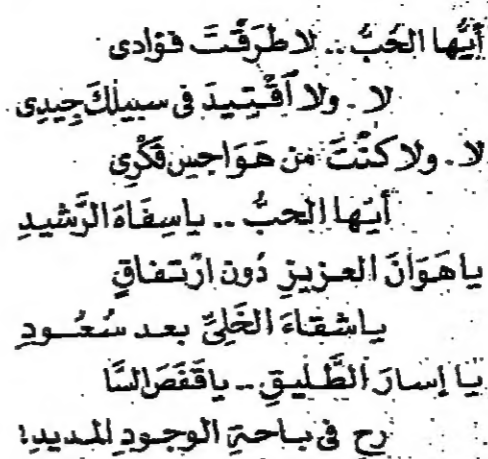 أَيُّها الحُبُّ .. لا طَرَقْتَ فؤادى
لا . ولا اقْتِيدَ فى سبيلكَ جِيدِى
لا . ولا كنْتَ من هَوَاجسِ فَكْرِى
أيّها الحبُّ .. ياسِفَاهَ الرَّشيدِ
ياهَوَانَ العزيزِ دُون ارْتفاقٍ
ياشقاءَ الخَلِىِّ بعد سُعُودِ
يَا إسارَ الطَّليقِ .. ياقَفَصَ السَّا
رحِ فى باحةِ الوجودِ المديدِ!